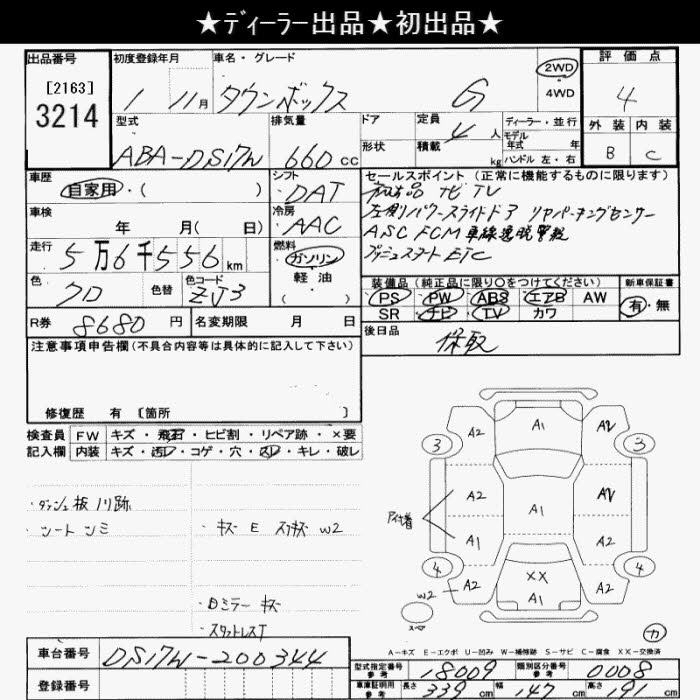 ★ディーラー出品★初出品★
出品番号 初度登録年月 車名・グレード 評価点
[2163]
3214
1 11月 タウンボックス G 2WD 4WD 4
型式 排気量 ドア 定員 ディーラー・並行 外装 内装
ABA-DS17W 660cc 形状 積載 4人 kg モデル年式 年 ハンドル 左・右 B C
車歴 シフト セールスポイント (正常に機能するものに限ります)
自家用・( ) DAT
初出品 ナビ TV
車検 冷房 左側パワースライドドア リヤパーキングセンサー
年 月( 日) AAC ASC FCM 車線逸脱警報
走行 燃料 プッシュスタート ETC
5万6千556km ガソリン
軽油
( )
色 色替 色コード 装備品 (純正品に限り○をつけてください) 新車保証書
クロ ZJ3 PS・PW・ABS・エアB・AW 有・無
SR・ナビ・TV・カワ
R券 8680円 名変期限 月 日 後日品
保取
注意事項申告欄(不具合内容等は具体的に記入して下さい)
修復歴 有 [箇所 ]
検査員 FW キズ・飛石・ヒビ割・リペア跡・×要
記入欄 内装 キズ・汚レ・コゲ・穴・スレ・キレ・破レ
・ダッシュ板ノリ跡
・シートシミ
・キズ E スリキズ W2
・Dミラーキズ
・スタットレスT
A2 A1 A2
3 3
A2 A2
A1
A1 A2
4 4
A2 XX A2
A1
W2
スペア
カ
A-キズ E-エクボ U-凹み W-補修跡 S-サビ C-腐食 XX-交換済
車台番号 DS17W-200344
登録番号
型式指定番号 参考 18009 類別区分番号 参考 0008
車庫証明用 参考 長さ 339cm 幅 147cm 高さ 91cm